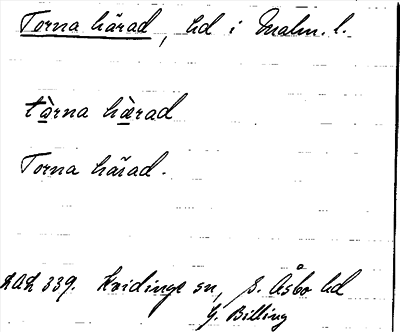 Torna härad, hd i Malm. l.
tòrna hàrad
Torna härad.
LAL 339. Kvidinge sn, S. Åsbo hd
G. Billing